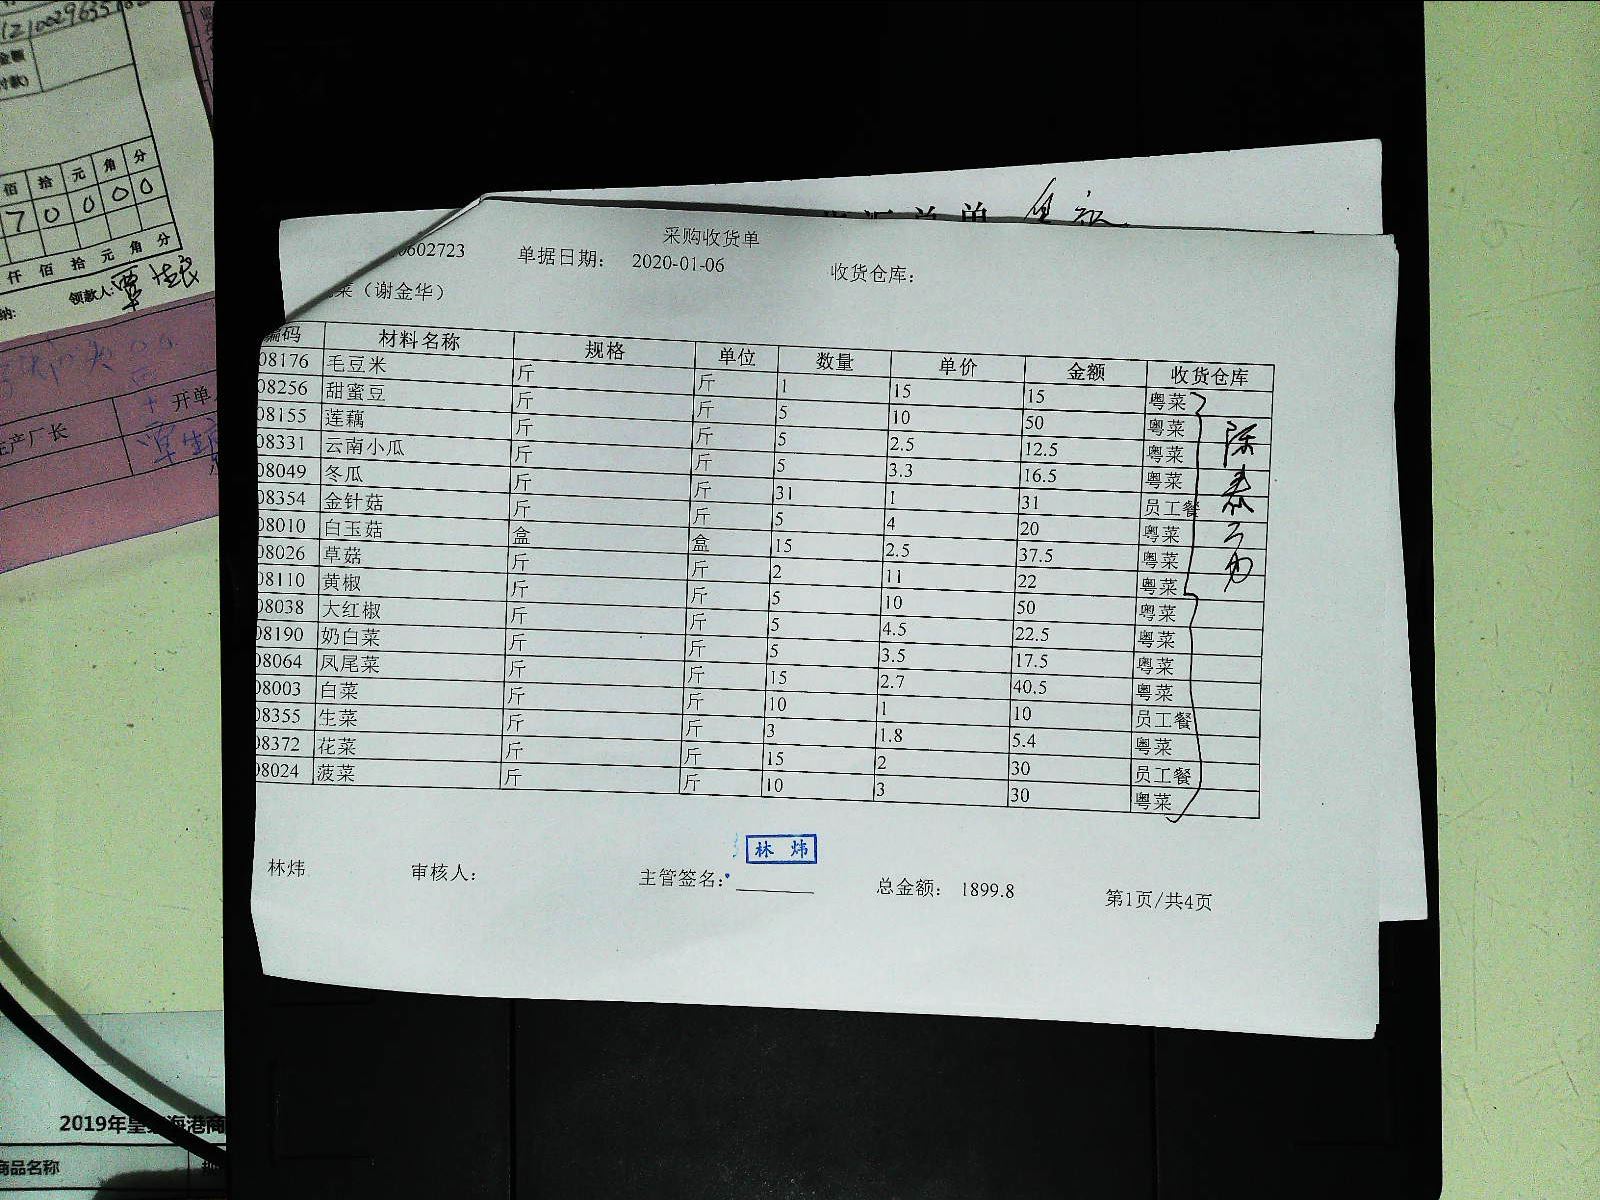 采购收货单
0602723 单据日期： 2020-01-06 收货仓库：
菜（谢金华）
编码 材料名称 规格 单位 数量 单价 金额 收货仓库
08176 毛豆米 斤 斤 1 15 15 粤菜
08256 甜蜜豆 斤 斤 5 10 50 粤菜
08155 莲藕 斤 斤 5 2.5 12.5 粤菜
08331 云南小瓜 斤 斤 5 3.3 16.5 粤菜
08049 冬瓜 斤 斤 31 1 31 员工餐
08354 金针菇 斤 斤 5 4 20 粤菜
08010 白玉菇 盒 盒 15 2.5 37.5 粤菜
08026 草菇 斤 斤 2 11 22 粤菜
08110 黄椒 斤 斤 5 10 50 粤菜
08038 大红椒 斤 斤 5 4.5 22.5 粤菜
08190 奶白菜 斤 斤 5 3.5 17.5 粤菜
08064 凤尾菜 斤 斤 15 2.7 40.5 粤菜
08003 白菜 斤 斤 10 1 10 员工餐
08355 生菜 斤 斤 3 1.8 5.4 粤菜
08372 花菜 斤 斤 15 2 30 员工餐
08024 菠菜 斤 斤 10 3 30 粤菜
林炜
林炜 审核人： 主管签名： 总金额： 1899.8 第1页/共4页
金额
佰 拾 元 角 分
7 0 0 0 0
仟 佰 拾 元 角 分
领款人:
开单
生产厂长
2019年皇 海港商
商品名称